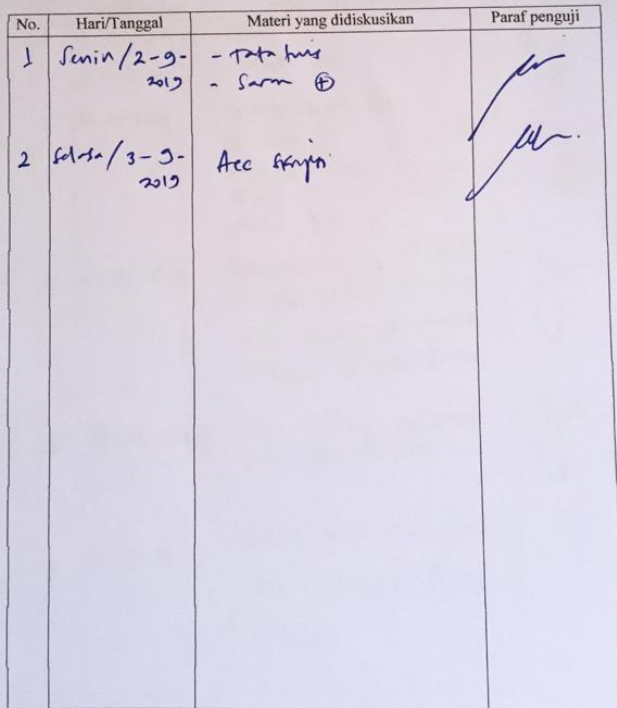 No. Hari/Tanggal Materi yang didiskusikan Paraf penguji
1 Senin/2-9- - tata tulis
2019 - Saran +
2 Selasa/3-9- Acc skripsi
2019